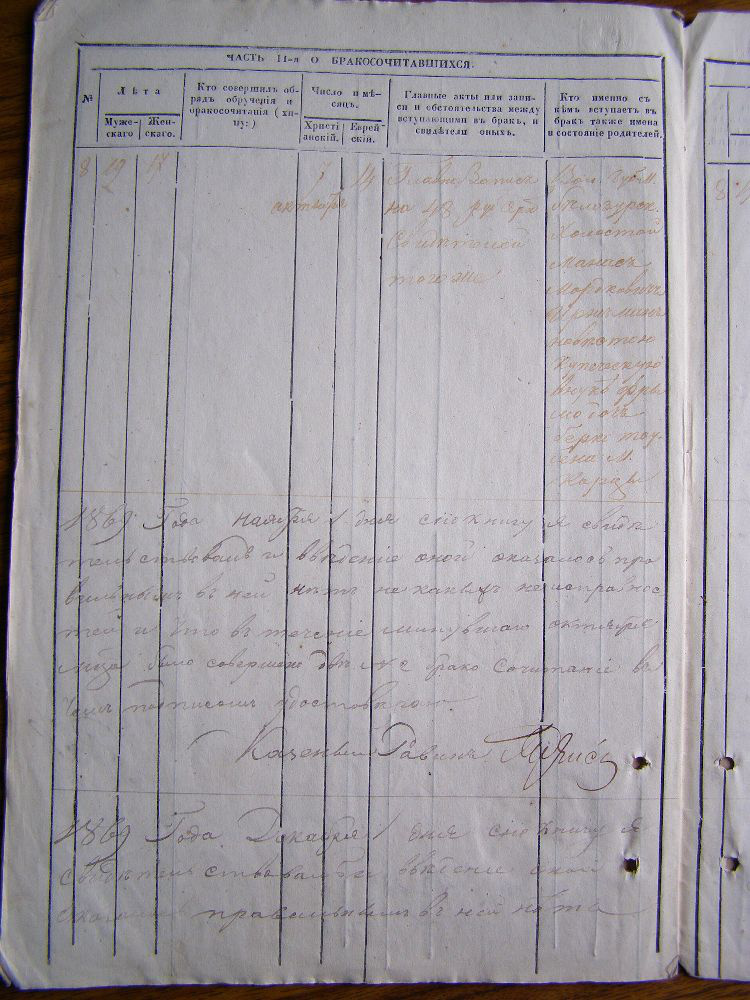 ЧАСТЬ II-я О БРАКОСОЧИТАВШИХСЯ.
№
Лѣта
Муже-
скаго
Жен-
скаго.
Кто совершилъ об-
рядъ обрученія и
бракосочитанія (хи-
пу:)
Число и мѣ-
сяцъ.
Христі-
анскій.
Еврей-
скій.
Главные акты или запи-
си и обстоятельства между
вступающими въ бракъ, и
свидѣтели оныхъ.
Кто именно съ
кѣмъ вступаетъ въ
бракъ также имена
и состояніе родителей.
8 19 17 7 14
октября
Главн: Запись
на 48 ру. сер
Свидѣтели
тоже
Холостой
Манись
Мордковичь
купеческую
внуку
1869 Года наября 1 дня сію книгу я свидѣ
тельствовалъ и ввѣденіе оной оказалось пра
вильнымъ въ ней нѣтъ некакихъ неисправнос
тей и что въ теченіе минувшаго октября
м-ца было совершено бракосочитаніе въ
чемъ подписомъ удостовѣряю.
Казеный Равинъ
1869 Года Декабря 1 дня сію книгу я
свидѣтельствовалъ и ввѣденіе оной
оказалось правильнымъ въ ней нѣтъ